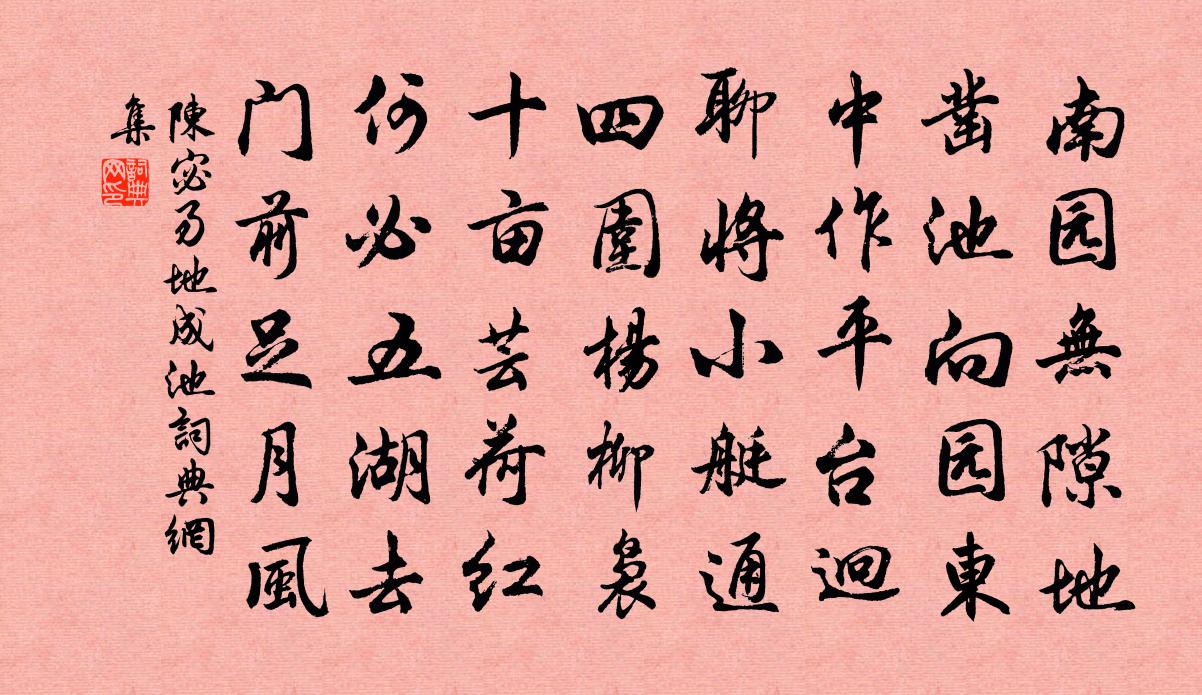 南园無隙地
凿池向园東
中作平台迥
聊將小艇通
四圍楊柳裊
十亩芸荷红
何必五湖去
门前足月風
陳宓易地成池詞典網
集
詞典网印